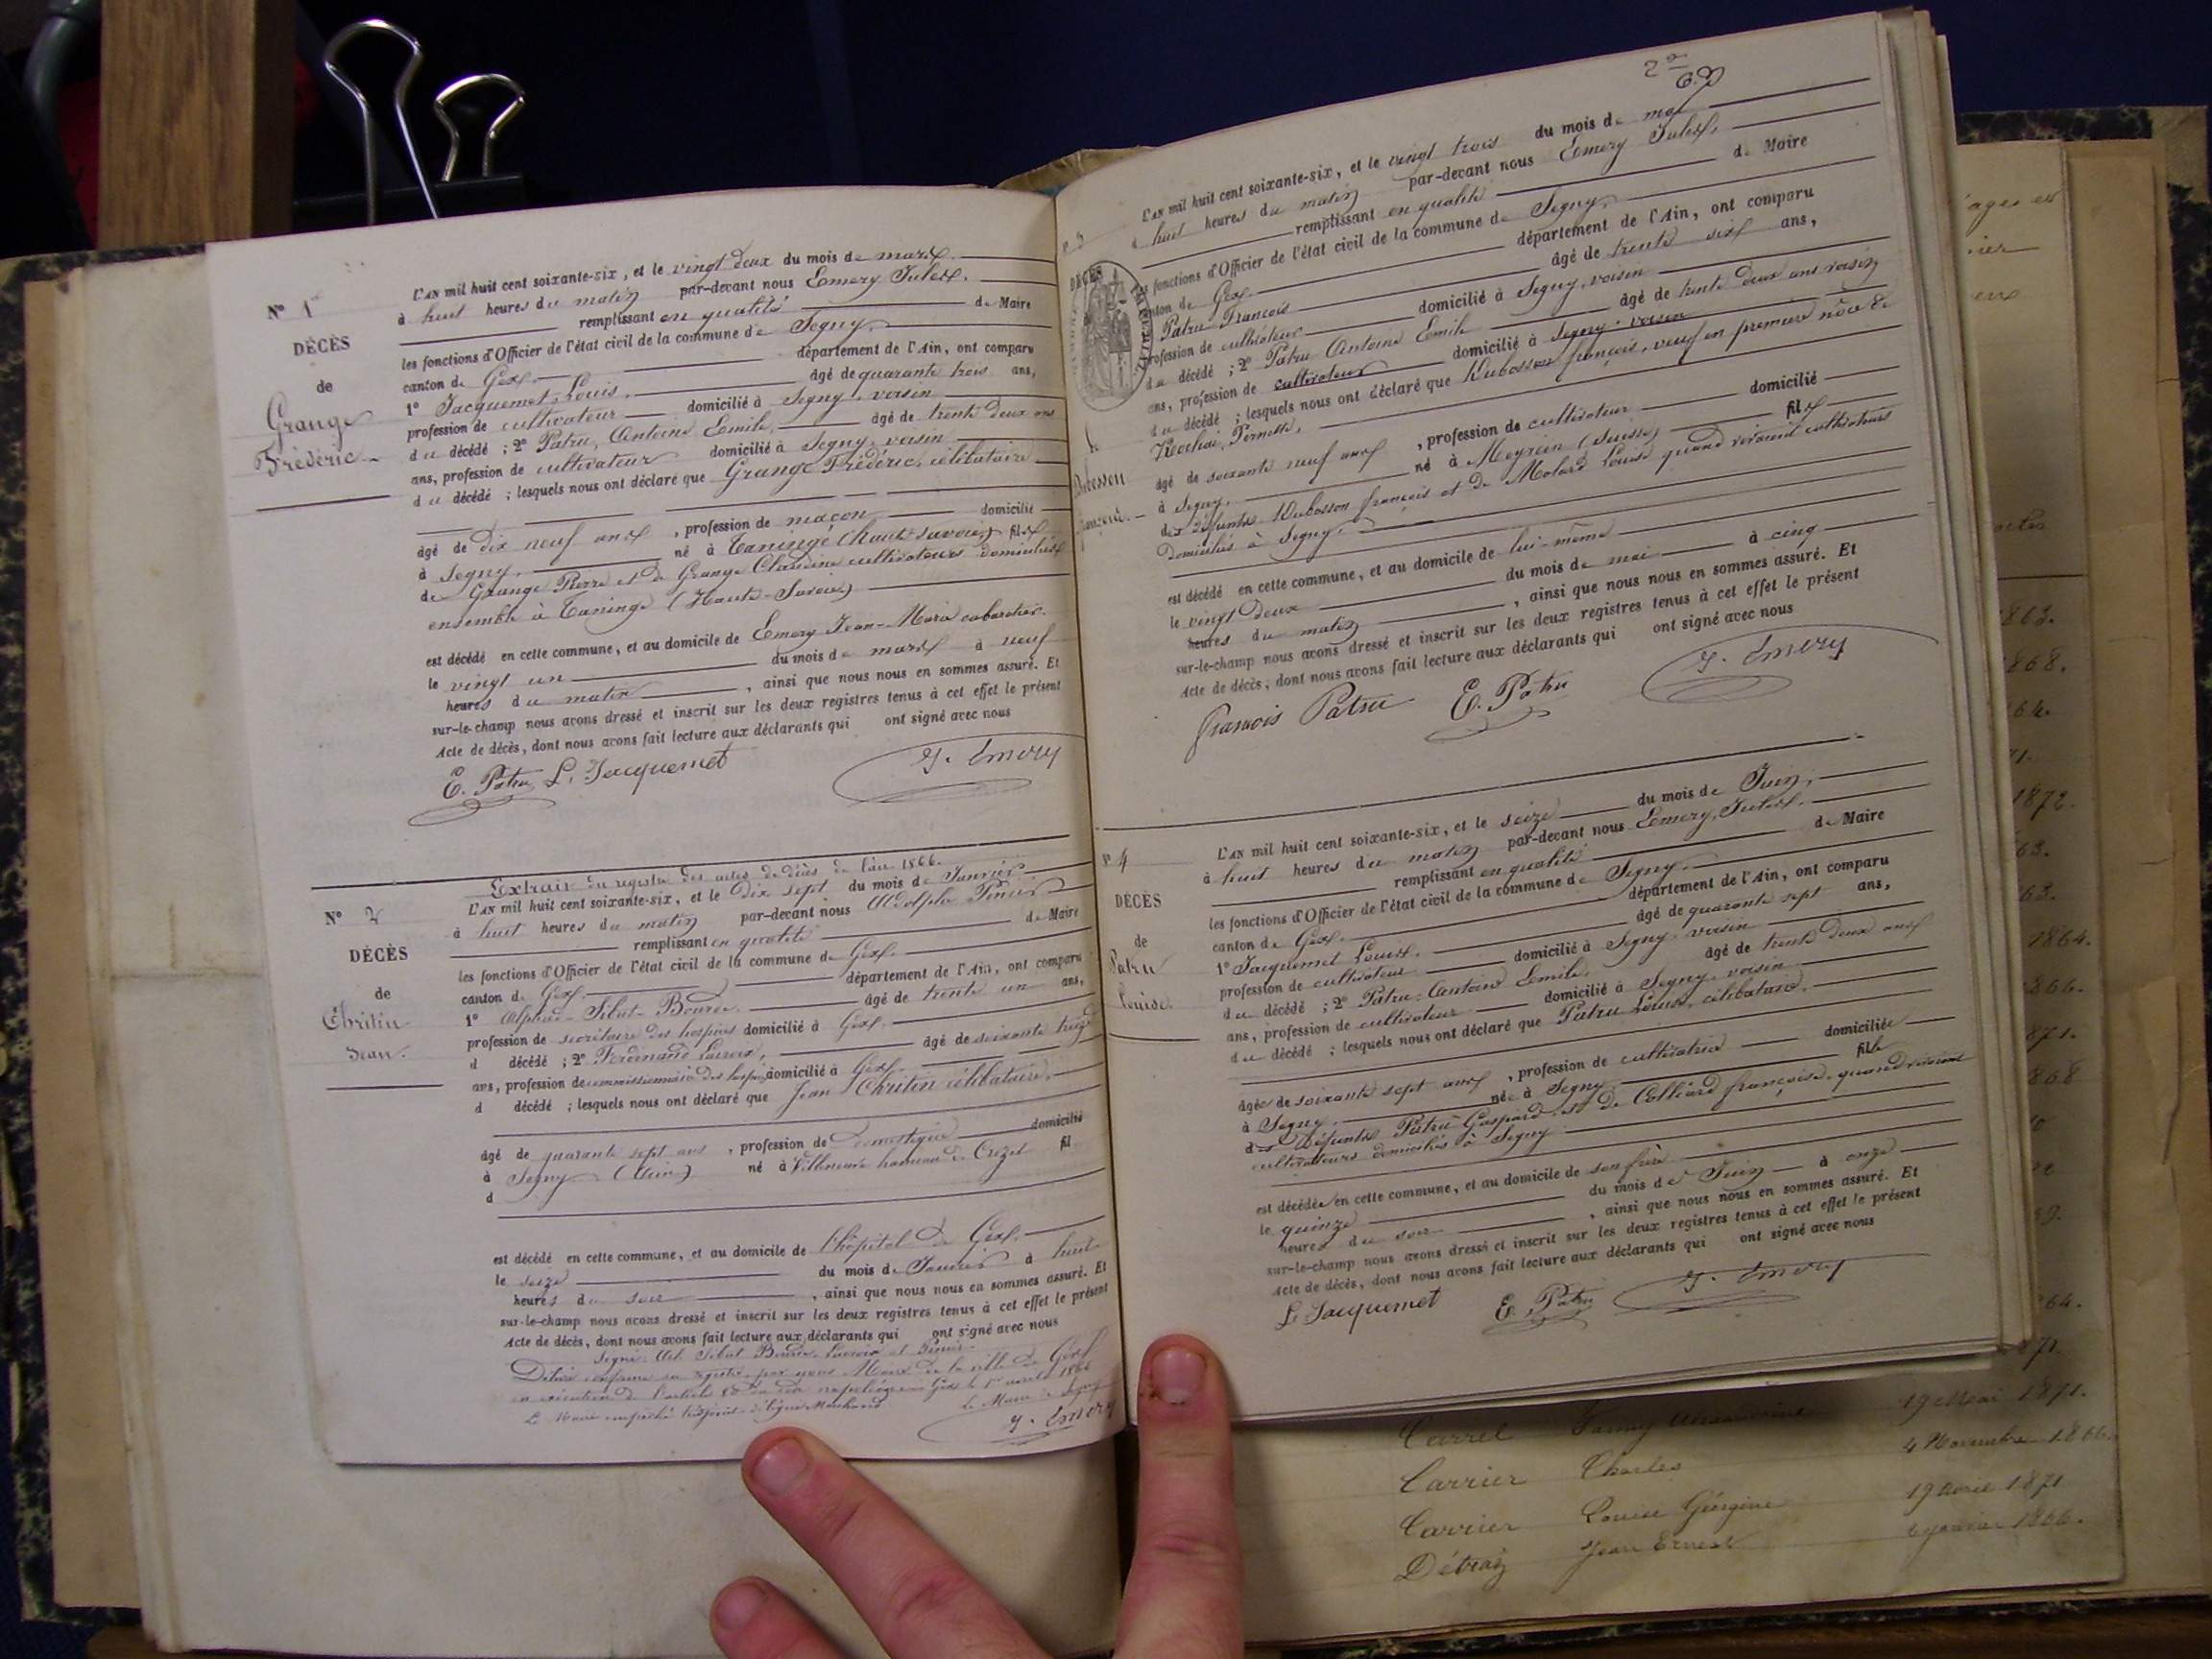 Nº 1
DÉCÈS
de
Grange
Frédéric
L'AN mil huit cent soixante-six, et le vingt deux du mois de mars
à huit heures du matin par-devant nous Emery Jules.
remplissant en qualité de Maire
les fonctions d'Officier de l'état civil de la commune de Segny
canton de Gex département de l'Ain, ont comparu
1º Jacquemet Louis. âgé de quarante trois ans,
profession de cultivateur domicilié à Segny, voisin
du décédé ; 2º Patru, Antoine Emile, âgé de trente deux ans
ans, profession de cultivateur domicilié à Segny, voisin
du décédé ; lesquels nous ont déclaré que Grange Frédéric, célibataire
âgé de dix neuf ans , profession de maçon domicilié
à Segny, né à Taninge (Haute Savoie) fils
de Grange Pierre et de Grange Claudine cultivateurs domiciliés
ensemble à Taninge (Haute-Savoie)
est décédé en cette commune, et au domicile de Emery Jean-Marie cabaretier
le vingt un du mois de mars à neuf
heures du matin , ainsi que nous nous en sommes assuré. Et
sur-le-champ nous avons dressé et inscrit sur les deux registres tenus à cet effet le présent
Acte de décès, dont nous avons fait lecture aux déclarants qui ont signé avec nous
E. Patru L. Jacquemet J. Emery
Nº 2
DÉCÈS
de
Chritin
Jean.
Extrait du registre des actes de décès de l'an 1866.
L'AN mil huit cent soixante-six, et le Dix sept du mois de Janvier
à huit heures du matin par-devant nous Adolphe
remplissant en qualité de Maire
les fonctions d'Officier de l'état civil de la commune de Gex
canton de Gex département de l'Ain, ont comparu
1º Alphée Sibut-Bourde âgé de trente un ans,
profession de secrétaire des hospices domicilié à Gex
d décédé ; 2º Ferdinand Lacroix, âgé de soixante treize
ans, profession de commissionnaire des hospices domicilié à Gex
d décédé ; lesquels nous ont déclaré que Jean Chritin célibataire
âgé de quarante sept ans , profession de domestique domicilié
à Segny (Ain) né à Villeneuve hameau de Crozet fil
d
est décédé en cette commune, et au domicile de l'hôpital de Gex
le seize du mois de Janvier à huit
heures du soir , ainsi que nous nous en sommes assuré. Et
sur-le-champ nous avons dressé et inscrit sur les deux registres tenus à cet effet le présent
Acte de décès, dont nous avons fait lecture aux déclarants qui ont signé avec nous
Lacroix et
par nous Maire de la ville de Gex
1866
Le Maire empêché Le Maire de Segny
J. Emery
2
DÉCÈS
Dubosson
L'AN mil huit cent soixante-six, et le vingt trois du mois de mai
à huit heures du matin par-devant nous Emery Jules,
remplissant en qualité de Maire
les fonctions d'Officier de l'état civil de la commune de Segny
canton de Gex département de l'Ain, ont comparu
Patru François âgé de trente six ans,
profession de cultivateur domicilié à Segny, voisin
du décédé ; 2º Patru Antoine Emile âgé de trente deux ans voisin
ans, profession de cultivateur domicilié à Segny, voisin
du décédé ; lesquels nous ont déclaré que Dubosson françois, veuf en première noce de
Rochaix Pernette,
âgé de soixante neuf ans , profession de cultivateur domicilié
à Segny, né à Meyrin (Suisse) fils
des défunts Dubosson françois et de Molard Louise quand vivaient cultivateurs
domiciliés à Segny.
est décédé en cette commune, et au domicile de lui-même
le vingt deux du mois de mai à cinq
heures du matin , ainsi que nous nous en sommes assuré. Et
sur-le-champ nous avons dressé et inscrit sur les deux registres tenus à cet effet le présent
Acte de décès, dont nous avons fait lecture aux déclarants qui ont signé avec nous
françois Patru E. Patru J. Emery
º 4
DÉCÈS
de
Patru
Louise.
L'AN mil huit cent soixante-six, et le seize du mois de Juin,
à huit heures du matin par-devant nous Emery, Jules.
remplissant en qualité de Maire
les fonctions d'Officier de l'état civil de la commune de Segny
canton de Gex département de l'Ain, ont comparu
1º Jacquemet Louis, âgé de quarante sept ans,
profession de cultivateur domicilié à Segny, voisin
du décédé ; 2º Patru, Antoine Emile, âgé de trente deux ans
ans, profession de cultivateur domicilié à Segny, voisin
du décédé ; lesquels nous ont déclaré que Patru Louise, célibataire,
âgée de soixante sept ans , profession de cultivatrice domiciliée
à Segny, née à Segny fille
des défunts Patru Gaspard et de Colliard françoise, quand vivaient
cultivateurs domiciliés à Segny
est décédée en cette commune, et au domicile de son frère
le quinze du mois de Juin à onze
heures du soir , ainsi que nous nous en sommes assuré. Et
sur-le-champ nous avons dressé et inscrit sur les deux registres tenus à cet effet le présent
Acte de décès, dont nous avons fait lecture aux déclarants qui ont signé avec nous
L. Jacquemet E. Patru J. Emery
1863.
1868.
64.
71.
1872.
63.
63.
1864.
1866.
1871.
1868
64.
871.
Carrel Fanny 19 Mai 1871.
Carrier Charles 4 Novembre 1866.
Carrier Louise Géorgine 19 avril 1871
Détraz Jean Ernest janvier 1866.